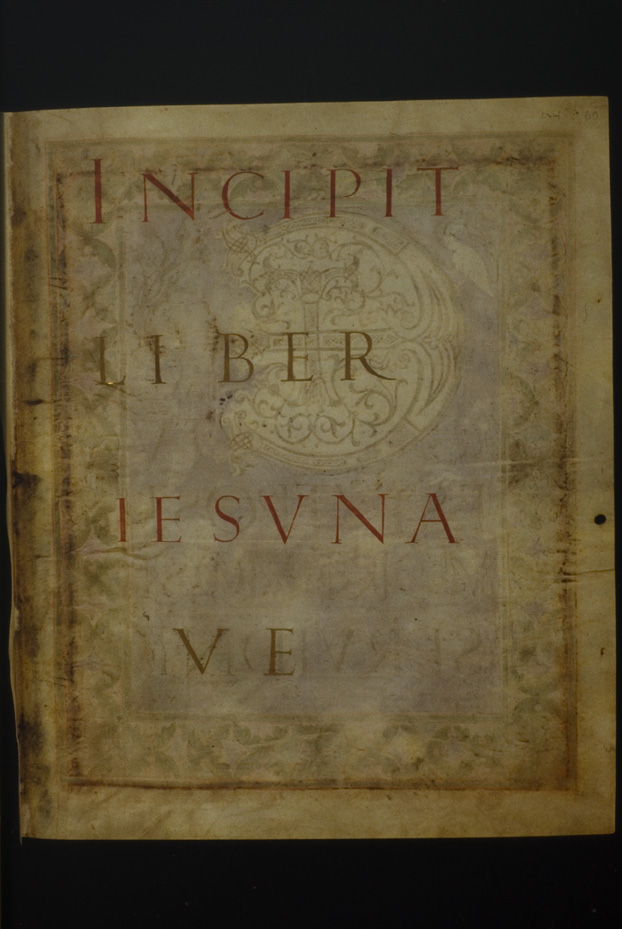 INCIPIT
LIBER
IESVNA
VE